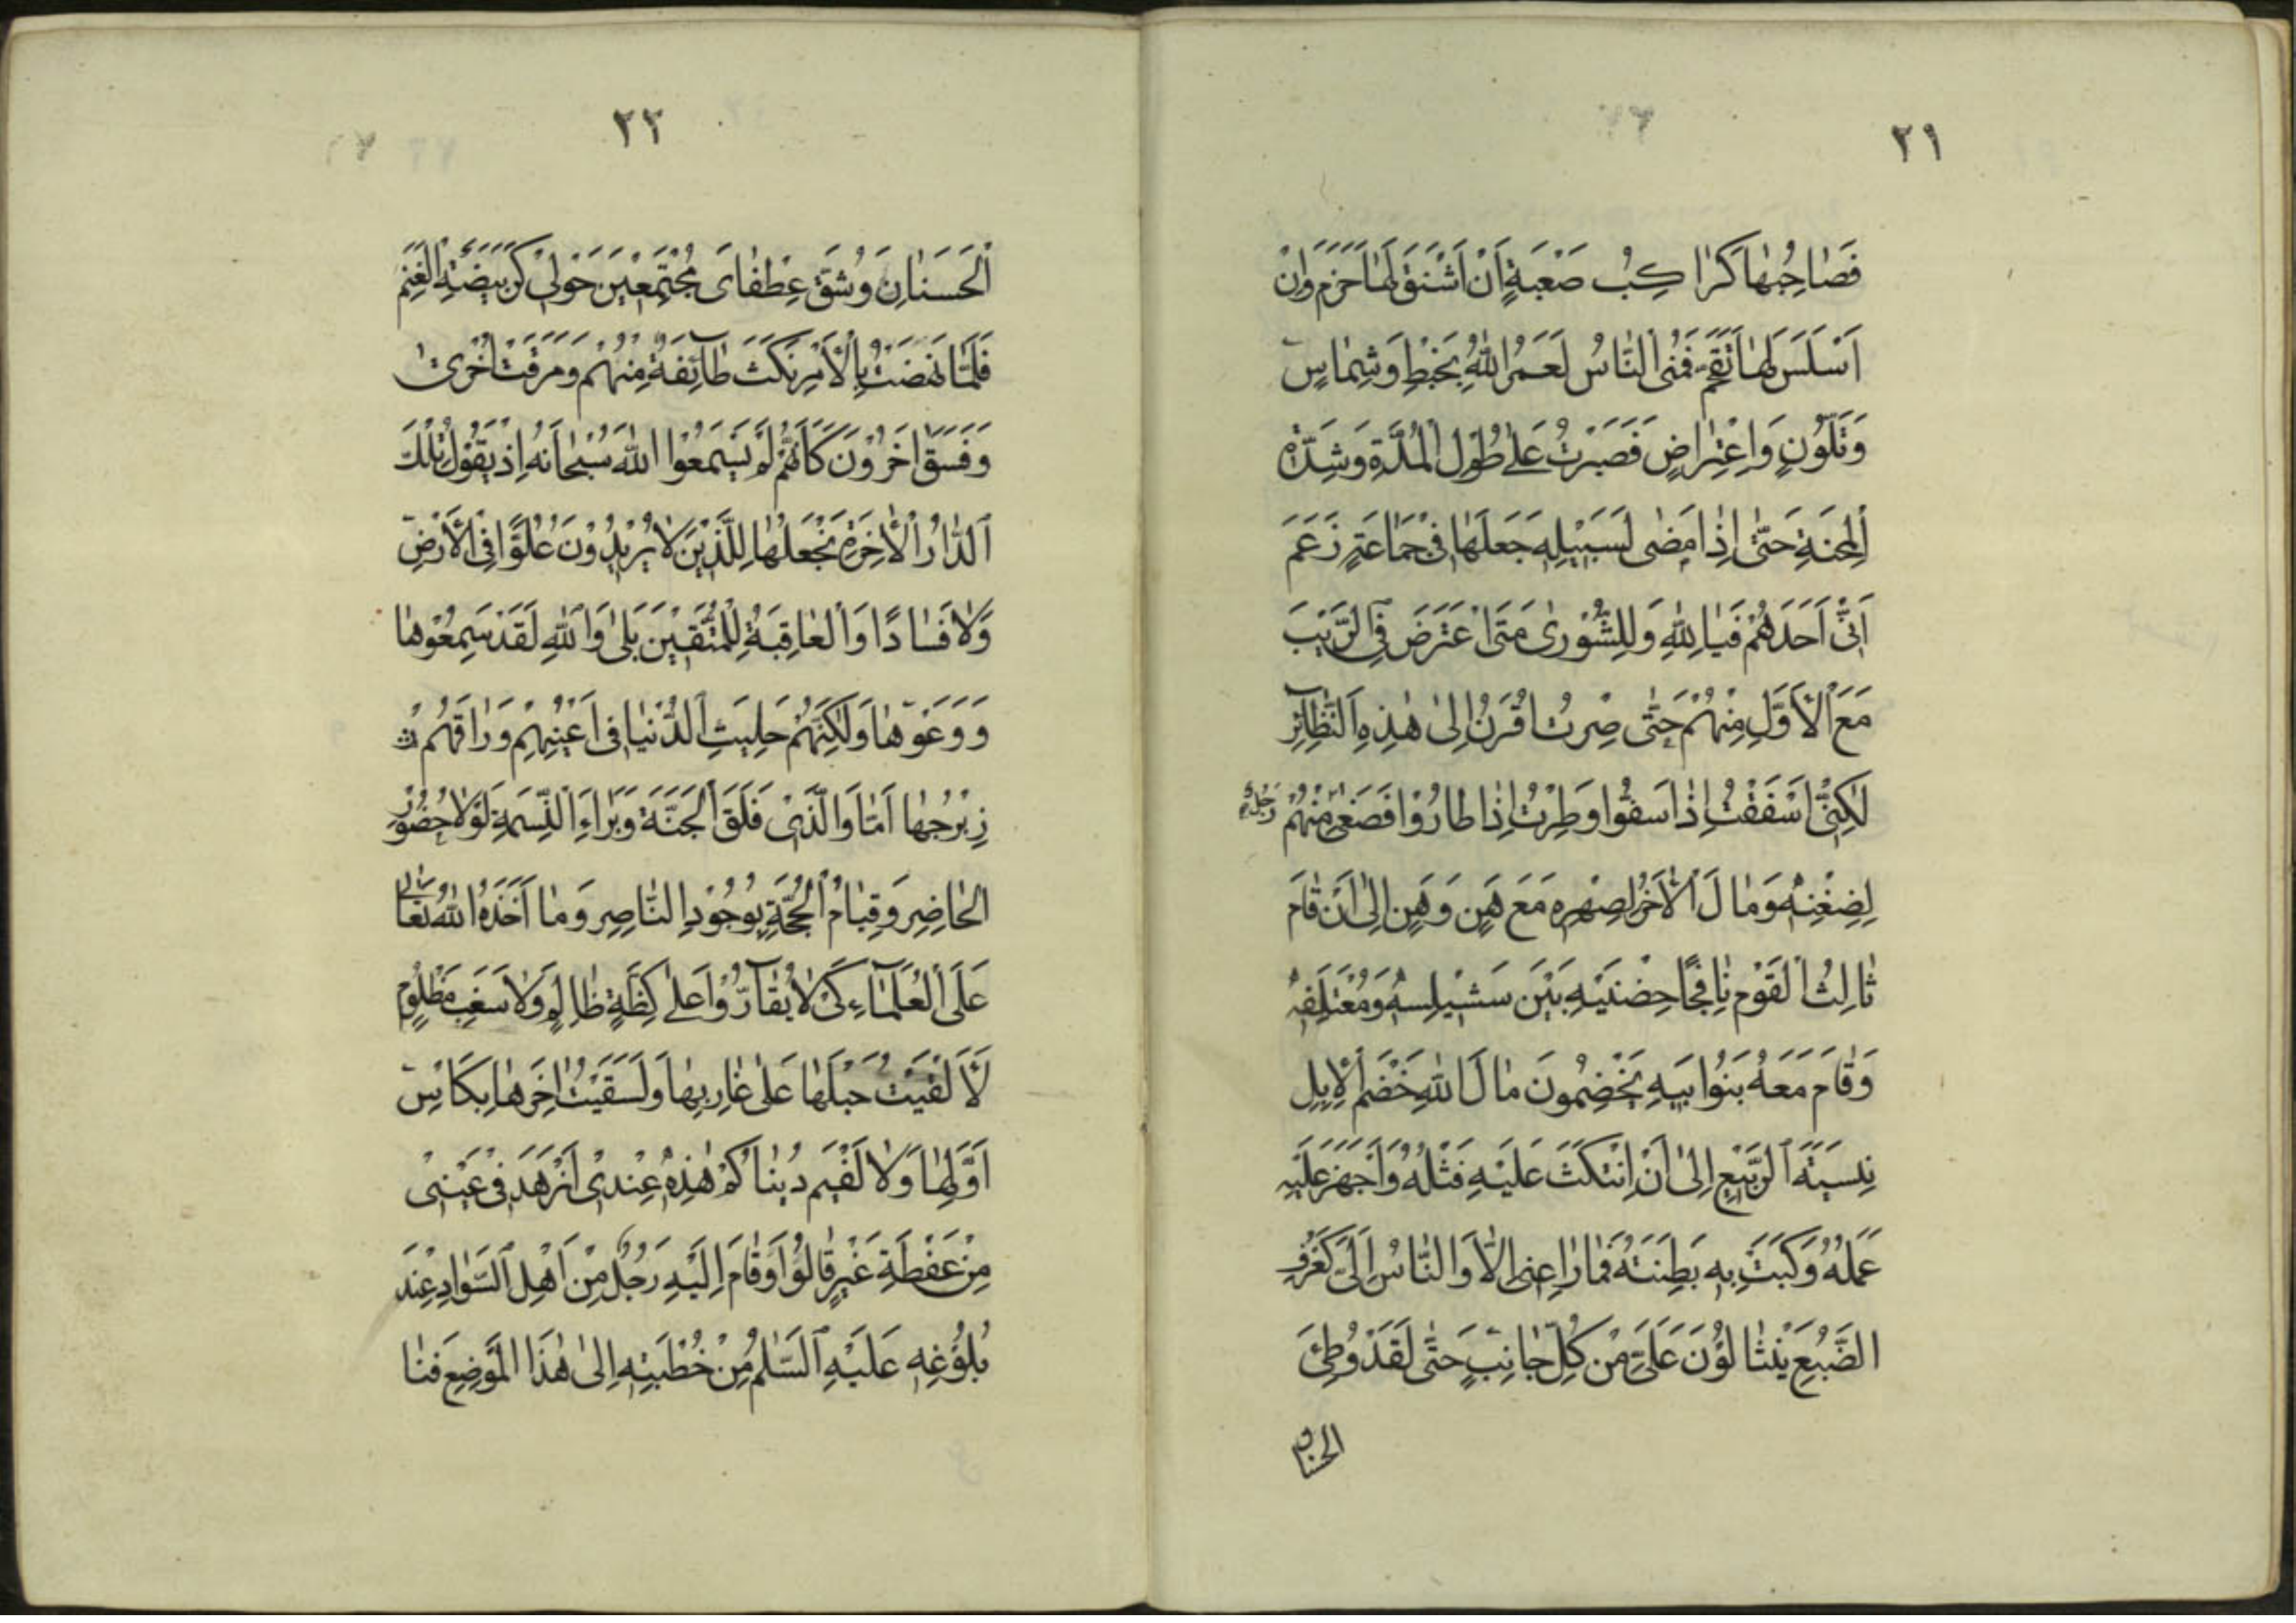 ٢١
فَصٰاحِبُهٰا كَرٰاكِبُ صَعْبَةٍ اَنْ اَشْنَقَ لَهٰا خَرَمَ وَاِنْ
اَسْلَسَ لَهٰا تَقَحَّمَ فَمُنَى النّٰاسُ لَعَمَرُ اللّٰهُ بِخَبْطٍ وَشِمٰاسٍ
وَتَلَوُّنٍ وَاِعْتِرٰاضٍ فَصَبَرْتُ عَلىٰ طُوْلِ الْمُدَّةِ وَشِدَّةِ
الْمِحْنَةِ حَتّٰى اِذٰا مَضٰى لِسَبِيْلِهِ جَعَلَهٰا فِىْ جَمٰاعَةٍ زَعَمَ
اَنِّى اَحَدَهُمْ فَيٰا لِلّٰهِ وَلِلشُّوْرىٰ مَتَى اعْتَرَضَ فِى الرَّيْبَ
مَعَ الْاَوَّلِ مِنْهُمْ حَتّٰى صِرْتُ اُقْرَنُ اِلىٰ هٰذِهِ النَّظٰآئِرِ
لٰكِنّى اَسْفَفْتُ اِذْ اَسفُّوا وَطِرْتُ اِذٰا طٰارُوْا فَصَغىٰ مِنْهُمْ رَجُلٌ
لِضِغْنِهِ وَمٰالَ الْاٰخَرُ لِصِهْرِهِ مَعَ هَنٍ وَهَنٍ اِلىٰ اَنْ قٰامَ
ثٰالِثُ الْقَوْمِ نٰافِجًا حِضْنَيْهِ بَيْنَ سَثيلِسهِ وَمُعْتَلَفِهِ
وَقٰامَ مَعَهُ بَنُوا بَيهِ يَخْضِمُونَ مٰالَ اللّٰهِ خَضْمَ الْاِبِلِ
نِبسَتَةَ الرَّبَيْعِ اِلىٰ اَنْ اِنْتَكَثَ عَلَيْهِ فَتْلُهُ وَاَجْهَزَ عَلَيْهِ
عَمَلُهُ وَكَبَتْ بِهِ بَطِنَتُهُ فَمٰا رٰاعِنى اِلّٰا وَالنّٰاسُ اِلَىَّ كَعُرْفِ
الضَّبُعِ يَنْثٰالُوْنَ عَلَىَّ مِنْ كُلِّ جٰانِبٍ حَتّٰى لَقَدْ وُطِئَ
٢٣
الْحَسَنٰانِ وَشُقَّ عِطْفٰاىَ مُجْتَمِعْيَنَ حَوْلِىْ كَرَبيَضَةِ الْغَنَمِ
فَلَمّٰا نَهَضْتُ بِالْاَمْرِ نَكَثَتْ طٰآئِفَةٌ مِنْهُمْ وَمَرَقَتْ اُخْرىٰ
وَفَسَقَ اٰخَرُوْنَ كَاَنَّهُمْ لَمْ يَسْمَعُوْا اللّٰهَ سُبْحٰانَهُ اِذْ يَقُوْلُ تِلْكَ
الدّٰارُ الْاٰخِرَةُ نَجْعَلُهٰا لِلَّذِيْنَ لٰا يُرْيِدُوْنَ عُلُوًّا فِى الْاَرْضِ
وَلٰا فَسٰادًا وَالْعٰاقِبَةُ لِلْمُتَّقِيْنَ بَلىٰ وَاللّٰهِ لَقَدْ سَمِعُوْهٰا
وَوَعَوْهٰا وَلٰكِنَّهُمْ حَلِيَتِ الدُّنْيٰا فى اَعْيُنِهِمْ وَرٰاقَهُمْ
زِبْرِجُهٰا اَمٰا وَالَّذِىْ فَلَقَ الْجَنَّةَ وَبَرَاءَ النَّسَمَةِ لَوْلٰا حُضُوْرُ
الْحٰاضِرِ وَقِيٰامُ الْحُجَّةِ بِوُجُوْدِ النّٰاصِرِ وَمٰا اَخَذَهُ اللّٰهُ تَعٰالىٰ
عَلَى الْعُلَمٰآءِ كَىْ لٰا يُقٰآرُّوْا عَلىٰ كِظَّةِ ظٰالِمٍ وَلٰا سَغَبِ مَظْلُوْمٍ
لَاَلْقَيْتُ حَبْلَهٰا عَلىٰ غٰارِبِهٰا وَلَسَقَيْتُ اٰخِرَهٰا بِكَاْسِ
اَوَّلِهٰا وَلٰا لَفْيَم دُنيٰاكُمْ هٰذِهِ عِنْدِىْ اَزْهَدَ فىْ عَيْنِىْ
مِنْ عَفْطَةِ عَيْرٍ قٰالُوْا وَقٰامَ اِلَيْهِ رَجُلٌ مِنْ اَهْلِ السَّوٰادِ عِنْدَ
بُلُوْغِهِ عَلَيْهِ السَّلٰمُ مِنْ خُطْبَتِهِ اِلىٰ هٰذَا الْمَوْضِعَ فَنٰا